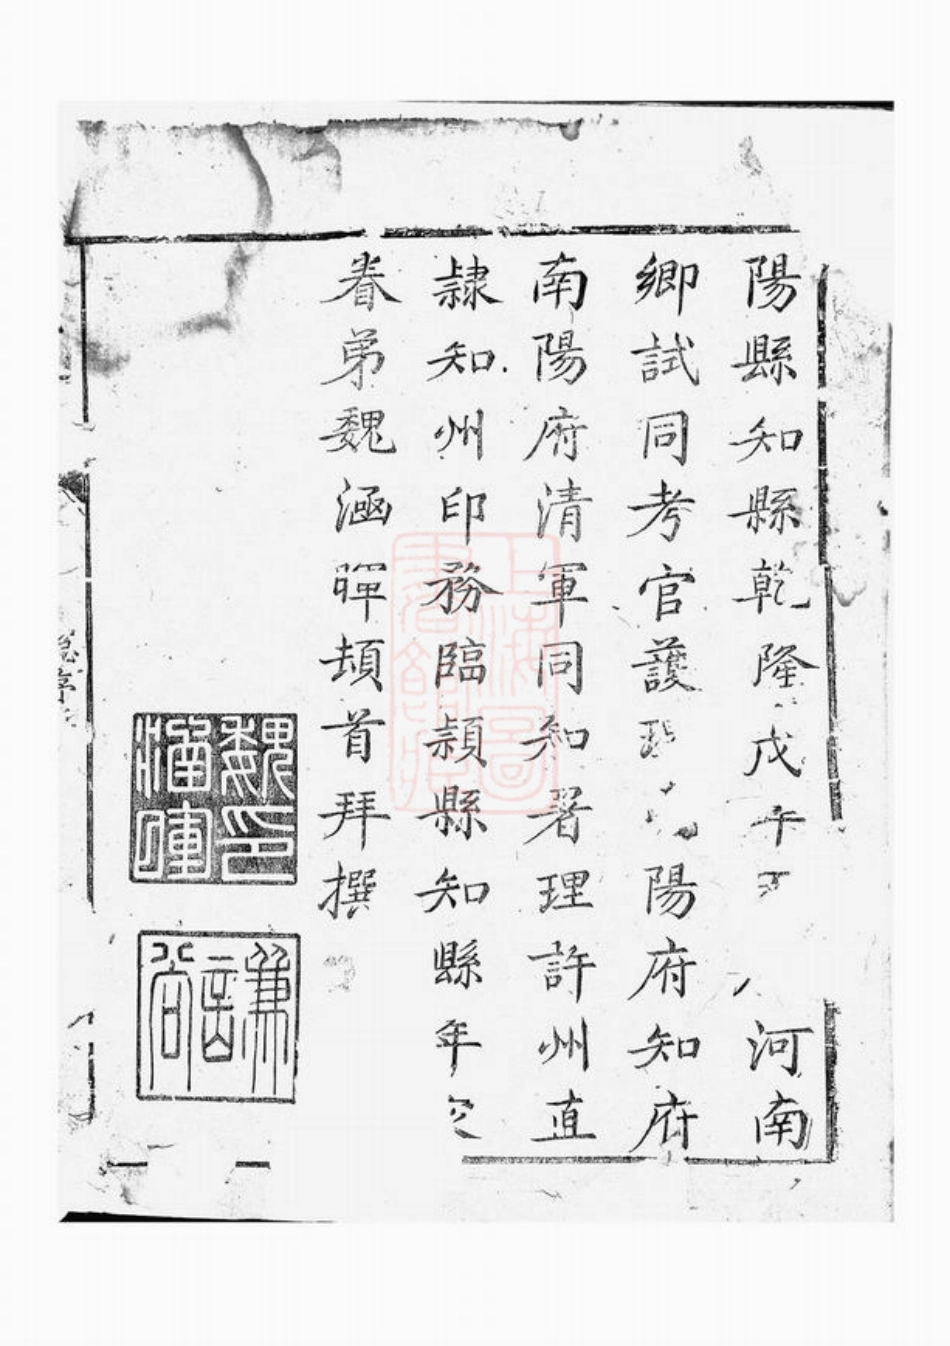 陽縣知縣乾隆戊午 河南
鄉試同考官護 陽府知府
南陽府清軍同知署理許州直
隷知州印務臨潁縣知縣年
眷弟魏涵暉頓首拜撰
魏印涵暉
謙谷
上海圖書館藏
序